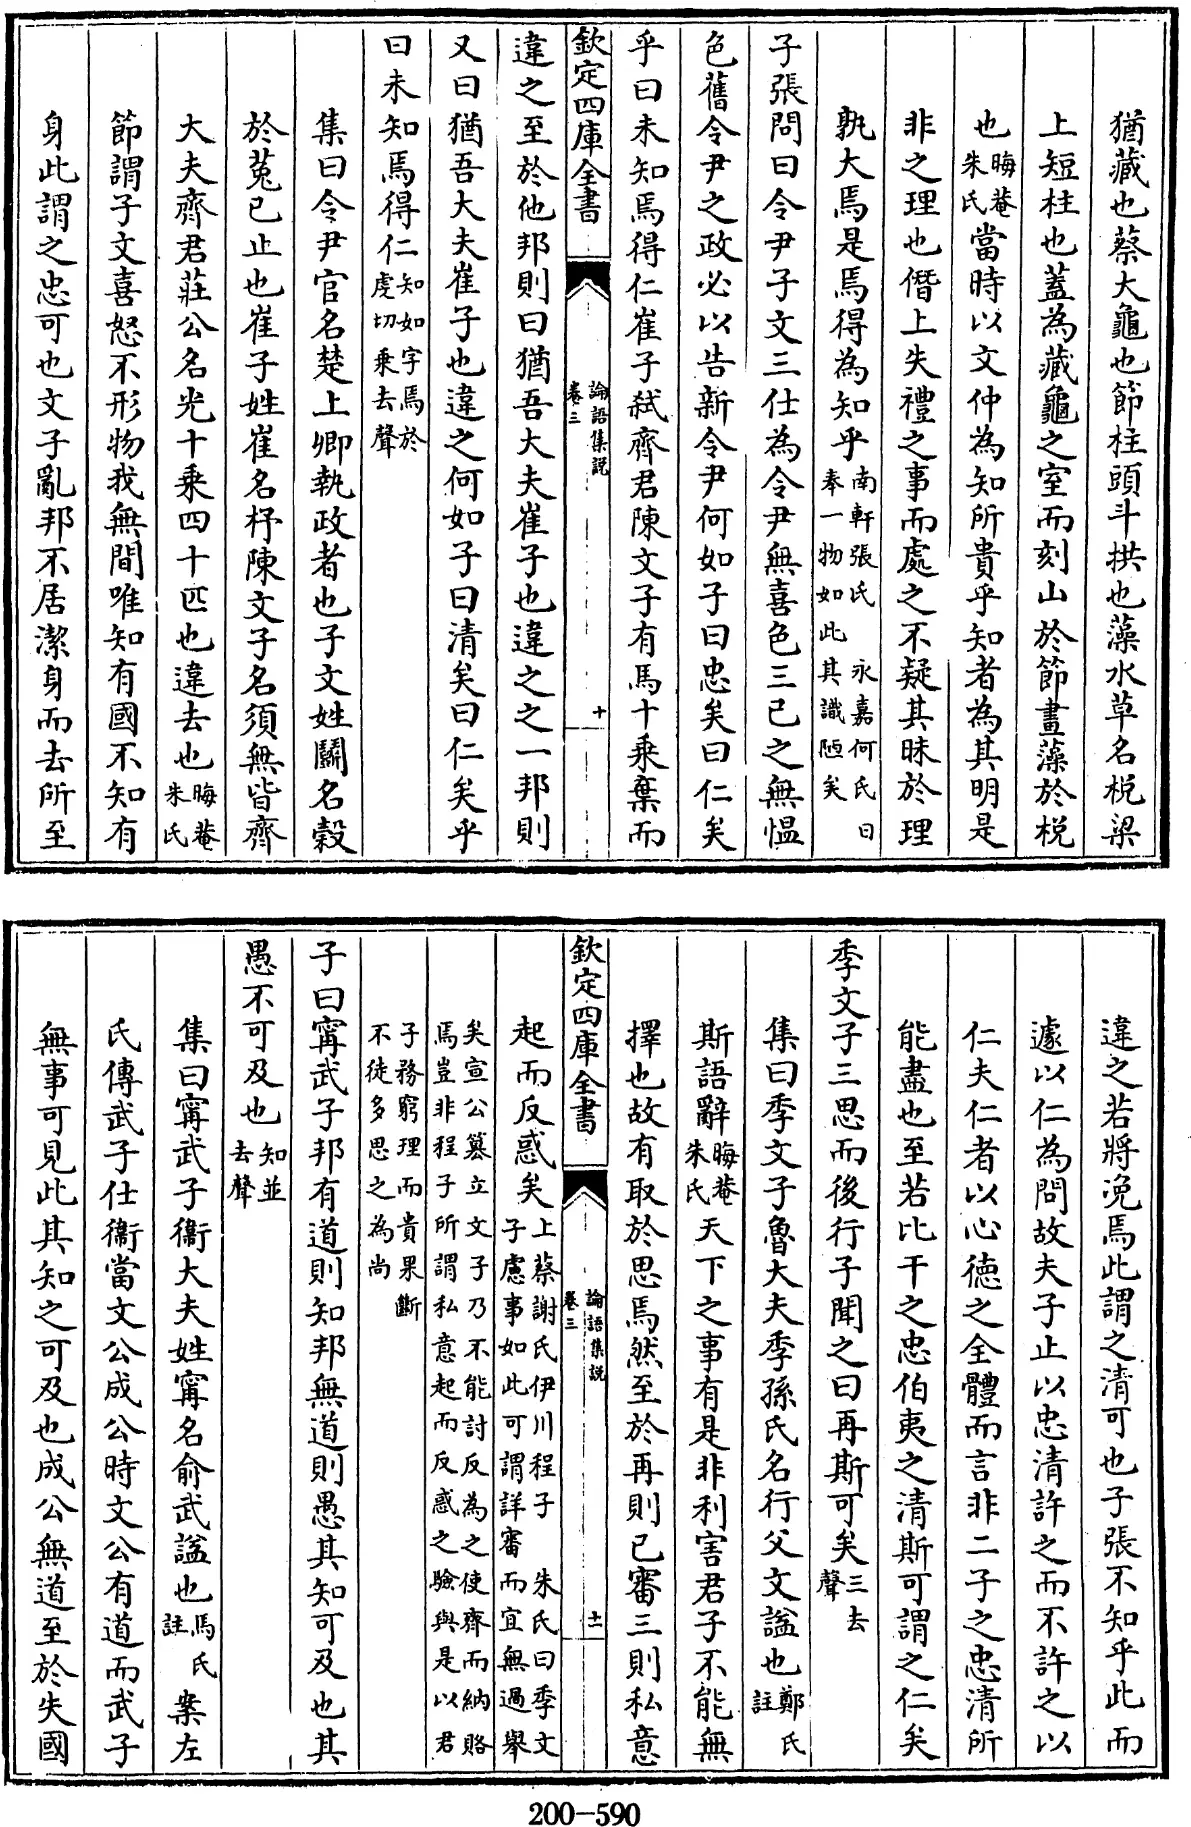 猶藏也蔡大龜也節柱頭斗拱也藻水草名梲梁
上短柱也蓋為藏龜之室而刻山於節畫藻於梲
也晦菴朱氏當時以文仲為知所貴乎知者為其明是
非之理也僭上失禮之事而處之不疑其昧於理
孰大焉是焉得為知乎南軒張氏 永嘉何氏曰奉一物如此其識陋矣
子張問曰令尹子文三仕為令尹無喜色三已之無愠
色舊令尹之政必以告新令尹何如子曰忠矣曰仁矣
乎曰未知焉得仁崔子弑齊君陳文子有馬十乘棄而
欽定四庫全書 論語集説 卷三 十
違之至於他邦則曰猶吾大夫崔子也違之之一邦則
又曰猶吾大夫崔子也違之何如子曰清矣曰仁矣乎
曰未知焉得仁知如字焉於虔切乘去聲
集曰令尹官名楚上卿執政者也子文姓鬭名穀
於菟已止也崔子姓崔名杼陳文子名須無皆齊
大夫齊君莊公名光十乘四十匹也違去也晦菴朱氏
節謂子文喜怒不形物我無間唯知有國不知有
身此謂之忠可也文子亂邦不居潔身而去所至
違之若將凂焉此謂之清可也子張不知乎此而
遽以仁為問故夫子止以忠清許之而不許之以
仁夫仁者以心德之全體而言非二子之忠清所
能盡也至若比干之忠伯夷之清斯可謂之仁矣
季文子三思而後行子聞之曰再斯可矣三去聲
集曰季文子魯大夫季孫氏名行父文諡也鄭氏註
斯語辭晦菴朱氏天下之事有是非利害君子不能無
擇也故有取於思焉然至於再則已審三則私意
欽定四庫全書 論語集説 卷三 十一
起而反惑矣上蔡謝氏伊川程子 朱氏曰季文子慮事如此可謂詳審而宜無過舉
矣宣公簒立文子乃不能討反為之使齊而納賂焉豈非程子所謂私意起而反惑之驗與是以君
子務窮理而貴果斷不徒多思之為尚
子曰甯武子邦有道則知邦無道則愚其知可及也其
愚不可及也知並去聲
集曰甯武子衞大夫姓甯名俞武諡也馬氏註案左
氏傳武子仕衞當文公成公時文公有道而武子
無事可見此其知之可及也成公無道至於失國
200-590